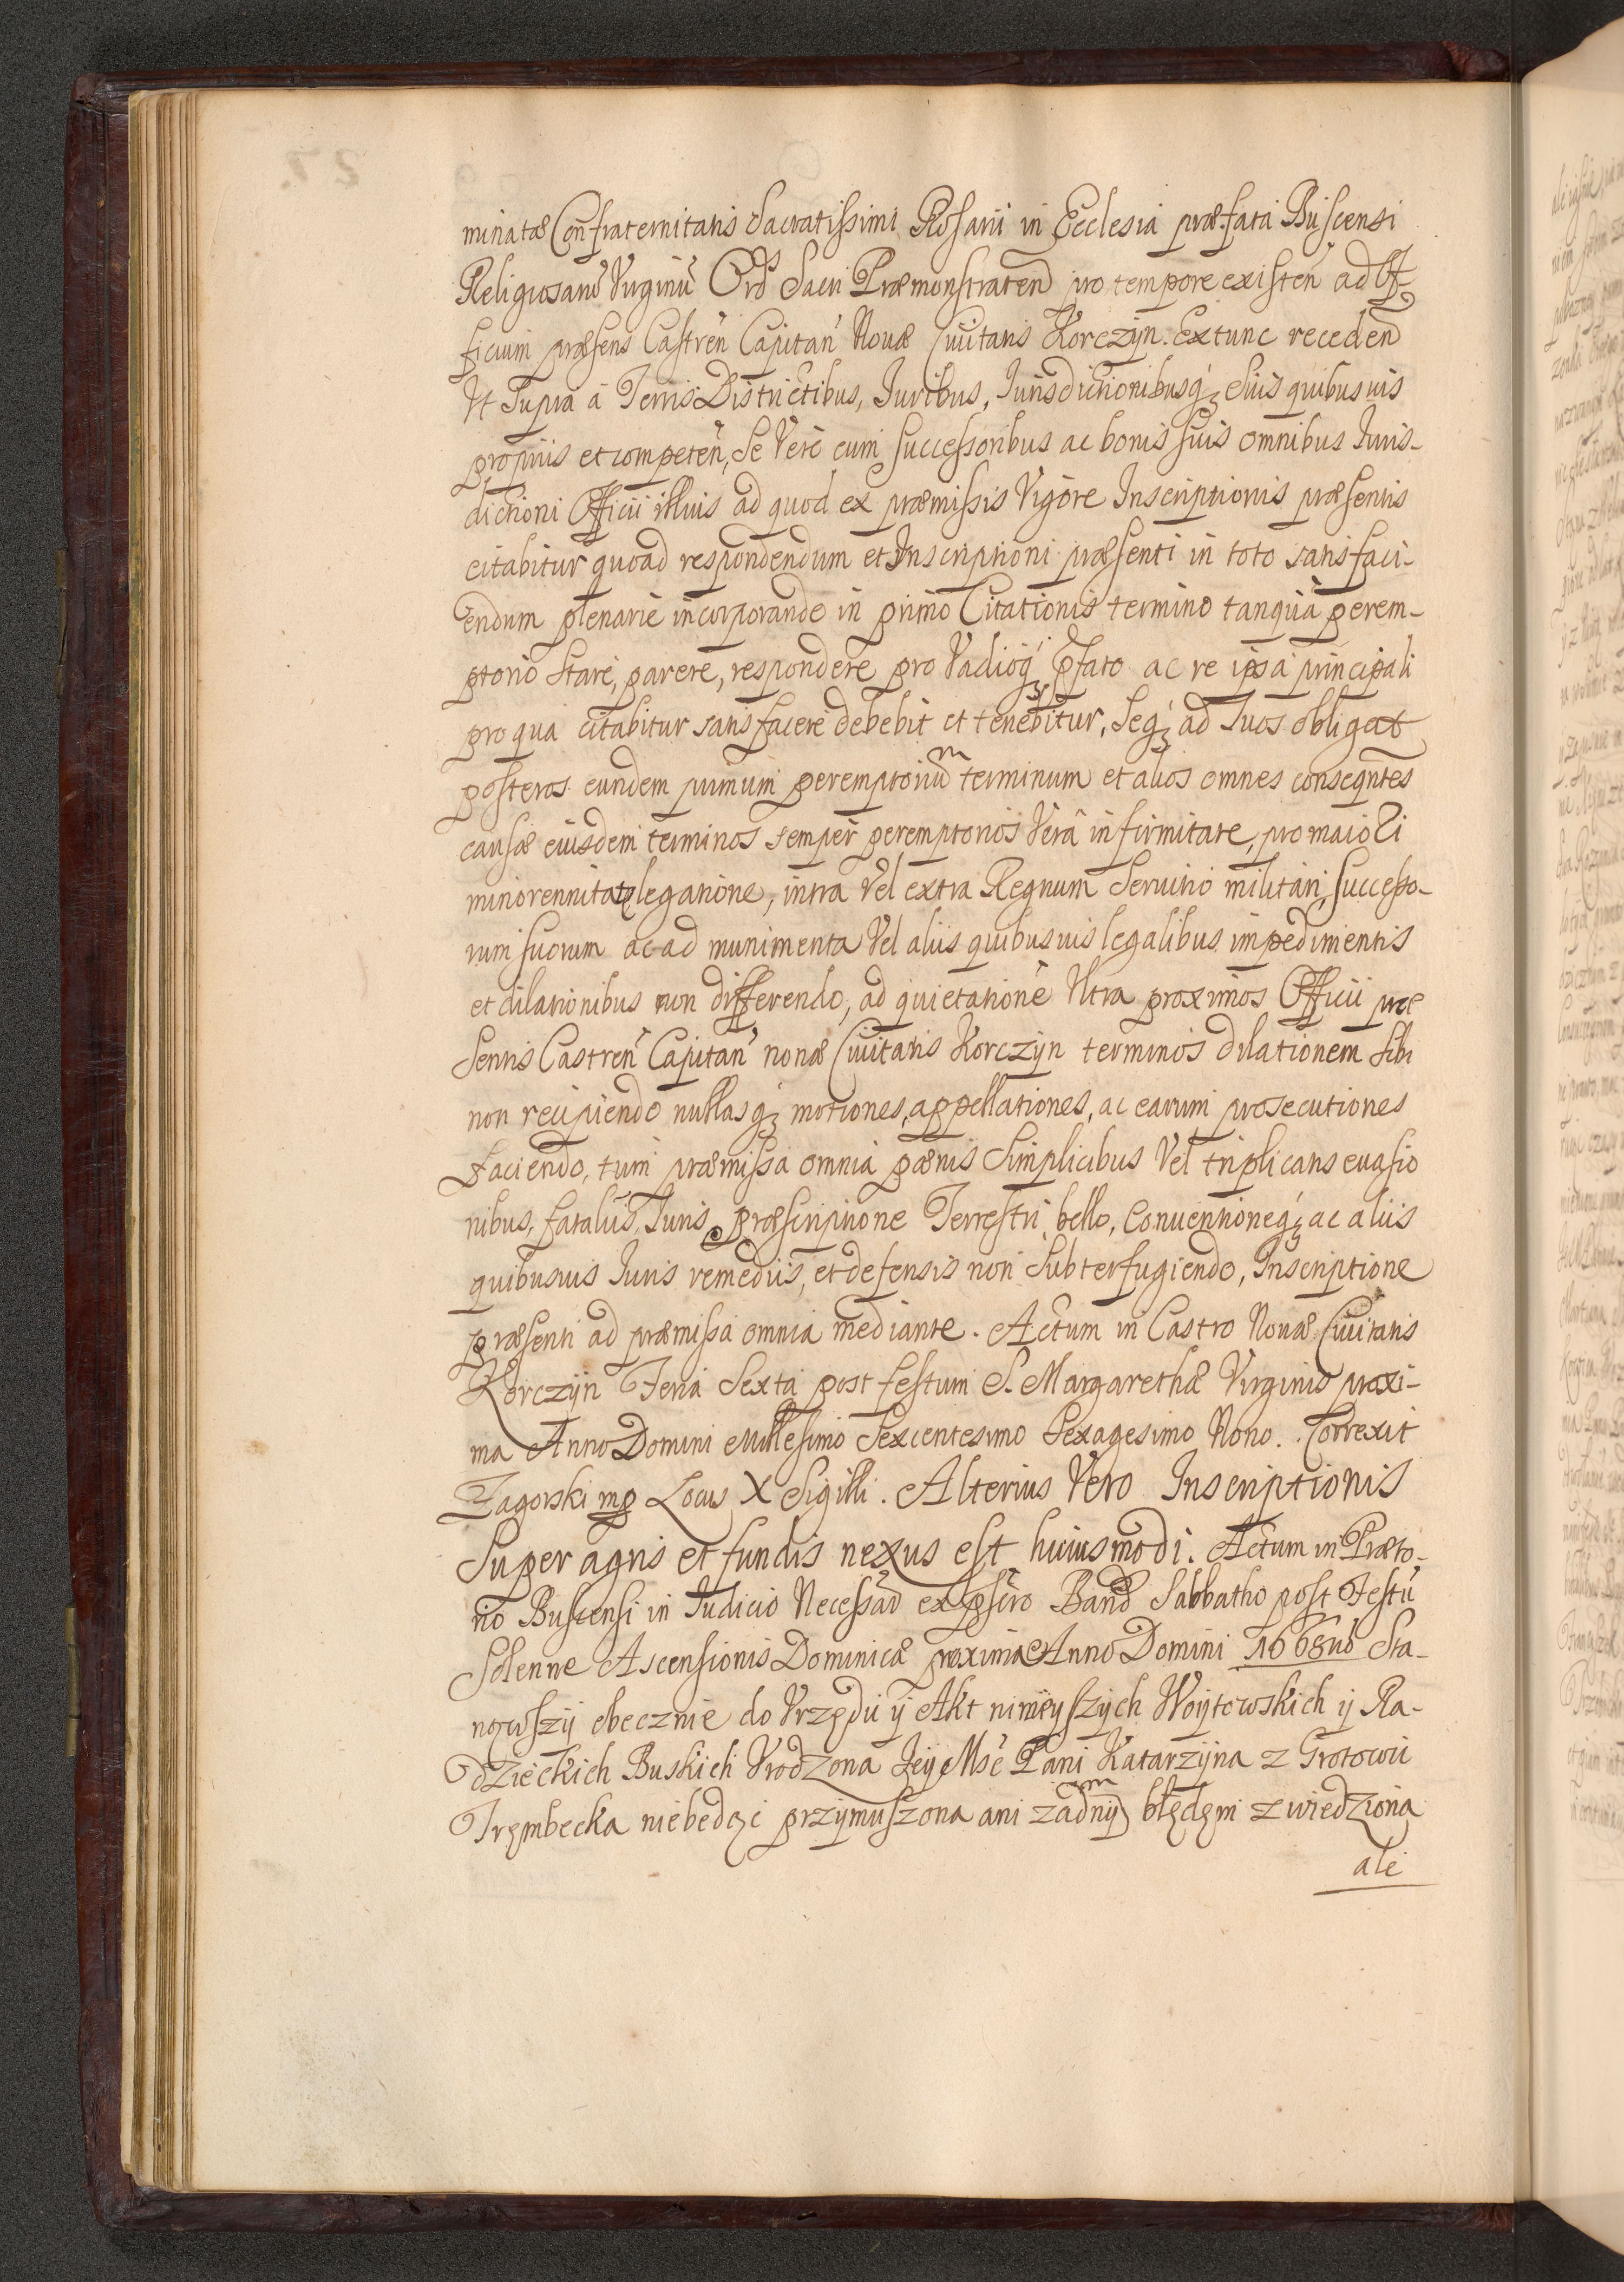 minatæ Confraternitatis Sacratissimi Rosarii in Ecclesia præfata Buscensi
Religiosarū Virginū Ord Sacri Præmonstraten pro tempore existen ad Of-
ficium præsens Castren Capitan Novæ Civitatis Korczyn. Extunc receden
Ut Supra a Terris Districtibus, Juribus, Jurisdictionibusq, suis quibusvis
propriis et competen, Se Vero cum successoribus ac bonis suis omnibus Juris-
dictioni Officii illius ad quod ex præmissis Vigore Inscriptionis præsentis
citabitur quoad respondendum et Inscriptioni præsenti in toto satisfaci-
endum plenarie incorporando in primo Citationis termino tanquā perem-
ptorio Stare, parere, respondere pro Vadioq, pfato ac re ipsa principali
pro qua citabitur satisfacere debebit et tenebitur, Seq, ad Suos obligat
posteros eundem primum peremptoriūm terminum et alios omnes conseqntes
causæ eiusdem terminos semper peremptorios Vera infirmitate, pro maiori
minorennitate legatione, intra Vel extra Regnum Servitio militari, Successo-
rum suorum ac ad munimenta Vel aliis quibusvis legalibus impedimentis
et dilationibus non differendo, ad quietatione Ultra proximos Officii præ
sentis Castren Capitan novæ Civitatis Korczyn terminos dilationem Sibi
non recipiendo nullasq, motiones, appellationes, ac earum prosecutiones
faciendo, tum præmissa omnia pænis Simplicibus Vel triplicatis evasio
nibus, fataliūs Juris, præscriptione Terrestri, bello, Conventioneq, ac aliis
quibusvis Juris remediis, et defensis non Subterfugiendo, Inscriptione
præsenti ad præmissa omnia mediante. Actum in Castro Novæ Civitatis
Korczyn Feria Sexta post festum S. Margarethæ Virginis proxi-
ma Anno Domini Millesimo Sexcentesimo Sexagesimo Nono. Correxit
Zagorski mp Locus X Sigilli. Alterius Vero Inscriptionis
Super agris et fundis nexus est huiusmodi. Actum in Præto-
rio Buscensi in Judicio Necessario ex Band Sabbatho post Festū
Solenne Ascensionis Dominicæ proxima Anno Domini 1668vo Sta-
nąwszy obecznie do Vrzędu y Akt ninieyszych Woytowskich y Ra-
dzieckich Buskich Vrodzona Jey Msc Pani Katarzyna z Grotowu
Trzembecka niebedąc przymuszona ani żadnym błędem zwiedziona
ale